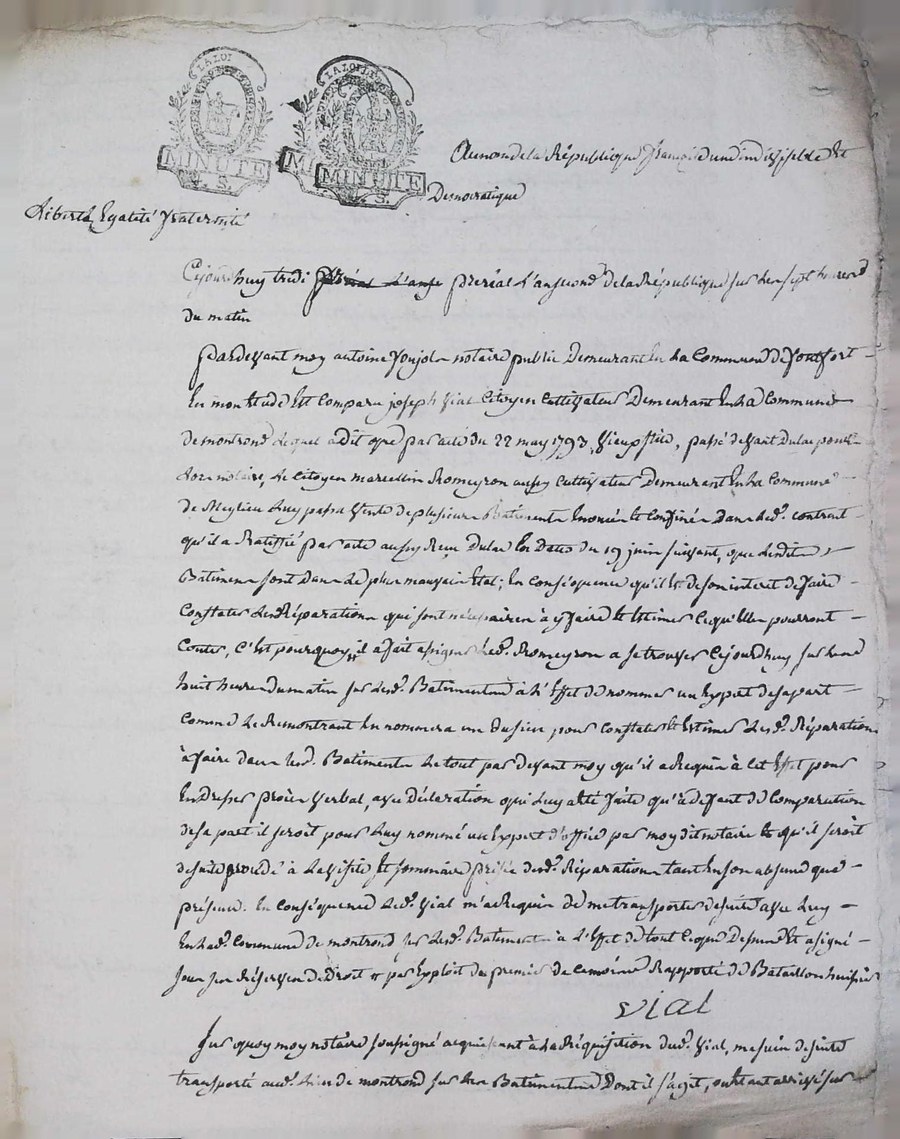 LA LOI
LA LOI
MINUTE MINUTE
Au nom de la République françoise une indivisible Et
Democratique
Liberté Egalité fraternité
Cejourd'huy tridi prerial L'an second de la République sur Les sept heures
du matin
pardevant moy antoine notaire public Demeurant En La Commune de fontfort
En montrude Est Comparu joseph Vial Citoyen Cultivateur Demeurant En La Commune
de montrond Lequel a Dit que par acte du 22 may 1793, Vieux stile, passé devant Dulac pour
Lors notaire, Le Citoyen marcellin Romeyron aussy Cultivateur Demeurant En La Commune
de Meylieu Luy passa Vente de plusieurs Batiments Enoncés Et Confinés Dans Led. contrat
qu'il a Ratiffié par acte aussy Reçu Dulac En Date du 19 juin suivant, que Lesdits
Batiments sont Dans Le plus mauvais Etat; En conséquence qu'il Est de son interet de faire
Constater Les Réparations qui sont nécessaires à y faire Et Estimer Ce qu'Elles pourront
Couter, C'Est pourquoy il a fait assigner Led. Romeyron a se trouver Cejourd'huy sur Les
huit heures du matin sur Lesd. Batiments à L'Effet de nommer un Expert de sa part
comme Le Remontrant En nommera un du sien, pour Constater Et Estimer Lesd. Réparations
à faire dans Lesd. Batiments Le tout par devant moy qu'il a Requis à Cet Effet pour
En Dresser procès Verbal, avec Déclaration qui Luy a été faite qu'à deffaut de Comparution
de sa part il seroit pour Luy nommé un Expert d'office par moydit notaire Et qu'il seroit
de suite procédé à La Visite Et sommaire prisée desd. Réparations tant En son absence que
présence. En Conséquence Led. Vial m'a Requis de me transporter de suite avec Luy
En Lad. Commune de montrond sur Lesd. Batiments à L'Effet de tout Ce que Dessus Et a signé
sous ses Réserves de Droit # par Exploit du premier de Ce mois Rapporté de Bataillon huissier
vial
Sur quoy moy notaire soussigné acquiesçant à La Réquisition dud. Vial, me suis de suite
transporté aud. Lieu de montrond sur Les Batiments Dont il s'agit, ou Etant arrivé sur